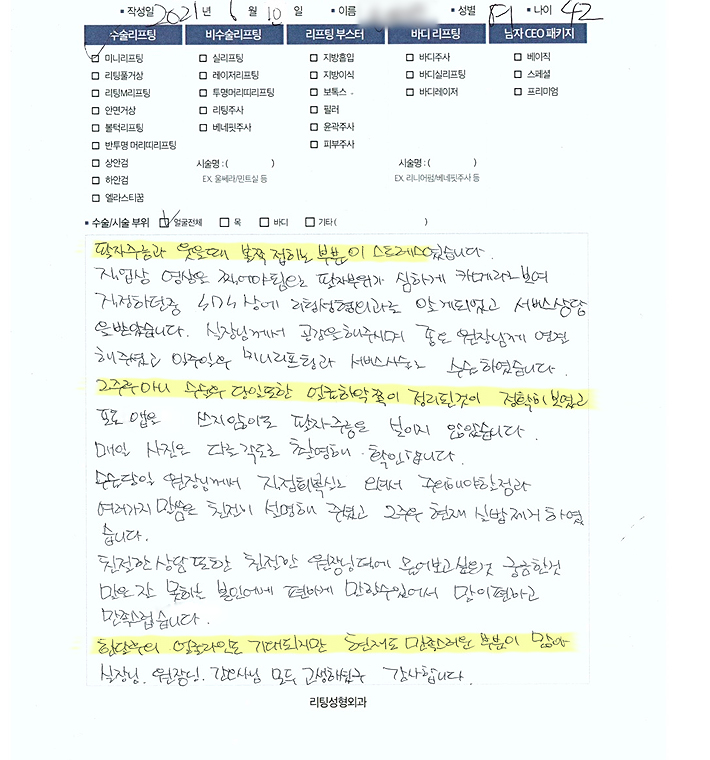 • 작성일 2021 년 6 월 10 일 • 이름 • 성별 • 나이 42
수술리프팅 비수술리프팅 리프팅 부스터 바디 리프팅 남자 CEO 패키지
미니리프팅 실리프팅 지방흡입 바디주사 베이직
리팅풀거상 레이저리프팅 지방이식 바디실리프팅 스페셜
리팅M리프팅 투명머리띠리프팅 보톡스 바디레이저 프리미엄
안면거상 리팅주사 필러
볼턱리프팅 베네핏주사 윤곽주사
반투명 머리띠리프팅 피부주사
상안검 시술명 : ( ) 시술명 : ( )
하안검 EX. 울쎄라/민트실 등 EX. 리니어펌/베네핏주사 등
엘라스티꿈
• 수술/시술 부위 얼굴전체 목 바디 기타 ( )
팔자주름과 웃을때 볼쪽 접히는 부분이 스트레스였습니다.
직업상 영상을 찍어야 팔자부위가 심하게 카메라로 보여
걱정하던중 상에 리팅성형외과를 알게되었고 서비스상담
을받았습니다. 실장님께서 공감을해주시며 좋은 원장님께 연결
해주셨고 일주일후 미니리프팅과 서비스시술로 수술하였습니다.
2주후 아니 수술후 당일또한 얼굴하악쪽이 정리된것이 정확히 보였고
포토 앱을 쓰지않아도 팔자주름은 보이지 않았습니다.
매일 사진은 다른각도로 촬영해 확인합니다.
수술당일 원장님께서 직접 오셔서 주의해야할점과
여러가지 말씀을 친절히 설명해 주셨고 2주후 현재 실밥제거 하였
습니다.
친절한 상담또한 친절한 원장님덕에 물어보고싶은것 궁금한것
많은 말 못하는 본인에게 편하게 만날수있어서 많이편하고
만족스럽습니다.
한달후의 얼굴라인도 기대되지만 현재도 만족스러운 부분이 많아
실장님. 원장님. 간호사님 모두 고생하셨구 감사합니다.
리팅성형외과